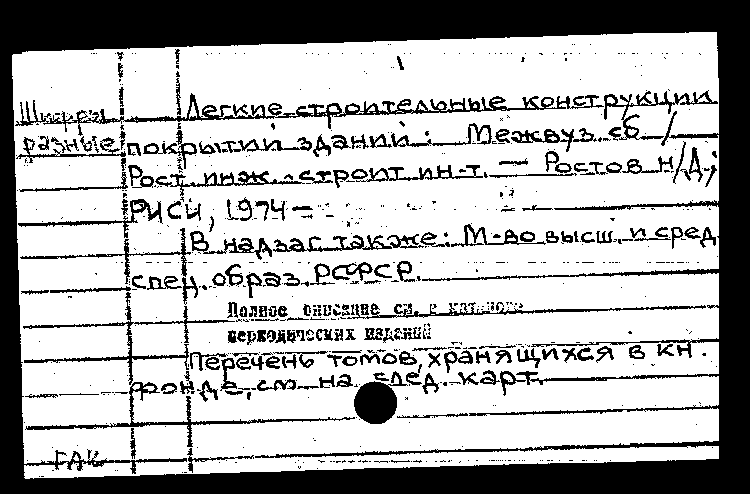 Шифры
разные
Легкие строительные конструкции
покрытий зданий: Межвуз. сб. /
Рост. инж.-строит ин-т. — Ростов н/Д.;
РИСИ, 1974 –
В надзаг также: М-во высш. и сред
спец. образ. РСФСР.
Полное описание см. в каталоге
периодических изданий
Перечень томов, хранящихся в кн.
фонде, см. на след. карт.
ГАК